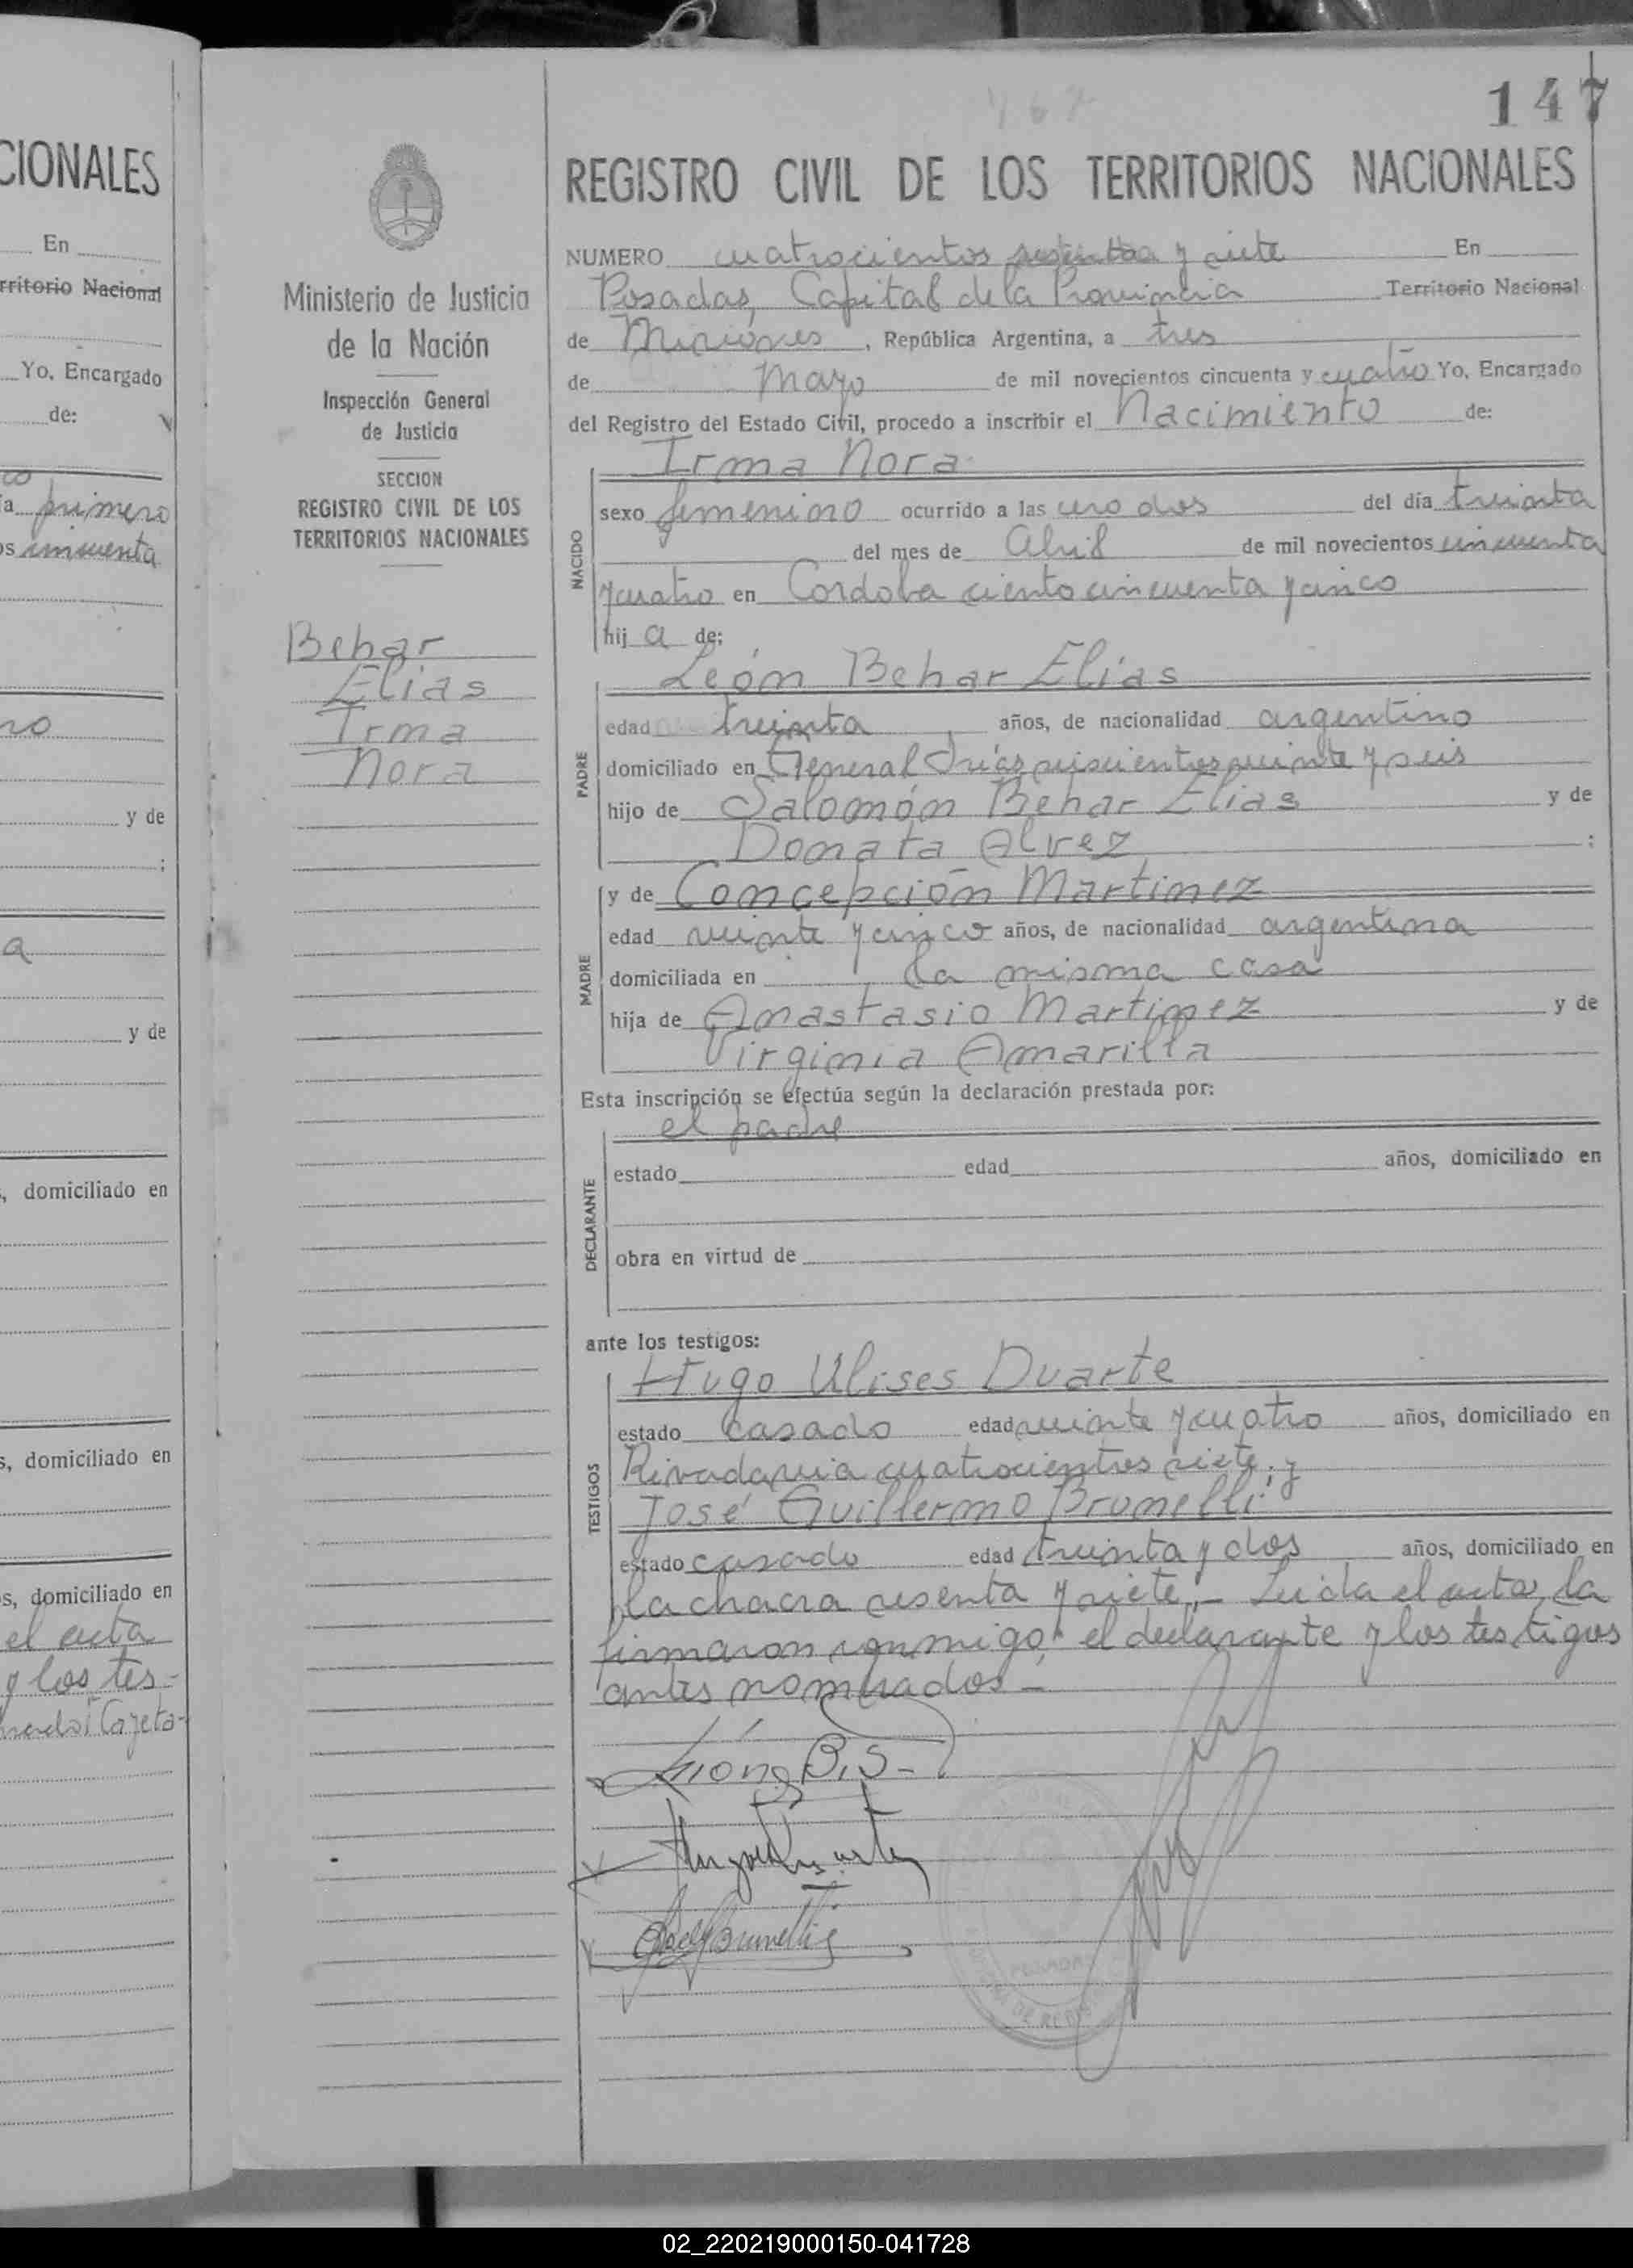 147
CIONALES
En
rritorio Nacional
Yo, Encargado
de:
a primero
os cincuenta
no
y de
;
a
y de
, domiciliado en
s, domiciliado en
s, domiciliado en
el acta
y los tes-
Ministerio de Justicia
de la Nación
Inspección General
de Justicia
SECCION
REGISTRO CIVIL DE LOS
TERRITORIOS NACIONALES
Behar
Elias
Irma
Nora
REGISTRO CIVIL DE LOS TERRITORIOS NACIONALES
NUMERO cuatrocientos y siete En
Posadas, Capital de la Provincia Territorio Nacional
de Misiones, República Argentina, a tres
de Mayo de mil novecientos cincuenta y cuatro Yo, Encargado
del Registro del Estado Civil, procedo a inscribir el Nacimiento de:
Irma Nora
NACIDO
sexo femenino ocurrido a las dos del día treinta
del mes de Abril de mil novecientos cincuenta
y cuatro en Cordoba ciento cincuenta y cinco
hij a de:
León Behar Elias
PADRE
edad treinta años, de nacionalidad argentino
domiciliado en General seiscientos veinte y seis
hijo de Salomón Behar Elias y de
Donata Alvez ;
MADRE
y de Concepción Martinez
edad veinte y cinco años, de nacionalidad argentina
domiciliada en la misma casa
hija de Anastasio Martinez y de
Virginia Amarilla
Esta inscripción se efectúa según la declaración prestada por:
el padre
DECLARANTE
estado edad años, domiciliado en
obra en virtud de
ante los testigos:
Hugo Ulises Duarte
TESTIGOS
estado casado edad veinte y cuatro años, domiciliado en
Rivadavia cuatrocientos siete; y
José Guillermo Brunelli
estado casado edad treinta y dos años, domiciliado en
la chacra sesenta y siete.- Leida el acta, la
firmaron conmigo, el declarante y los testigos
antes nombrados-
02_220219000150-041728